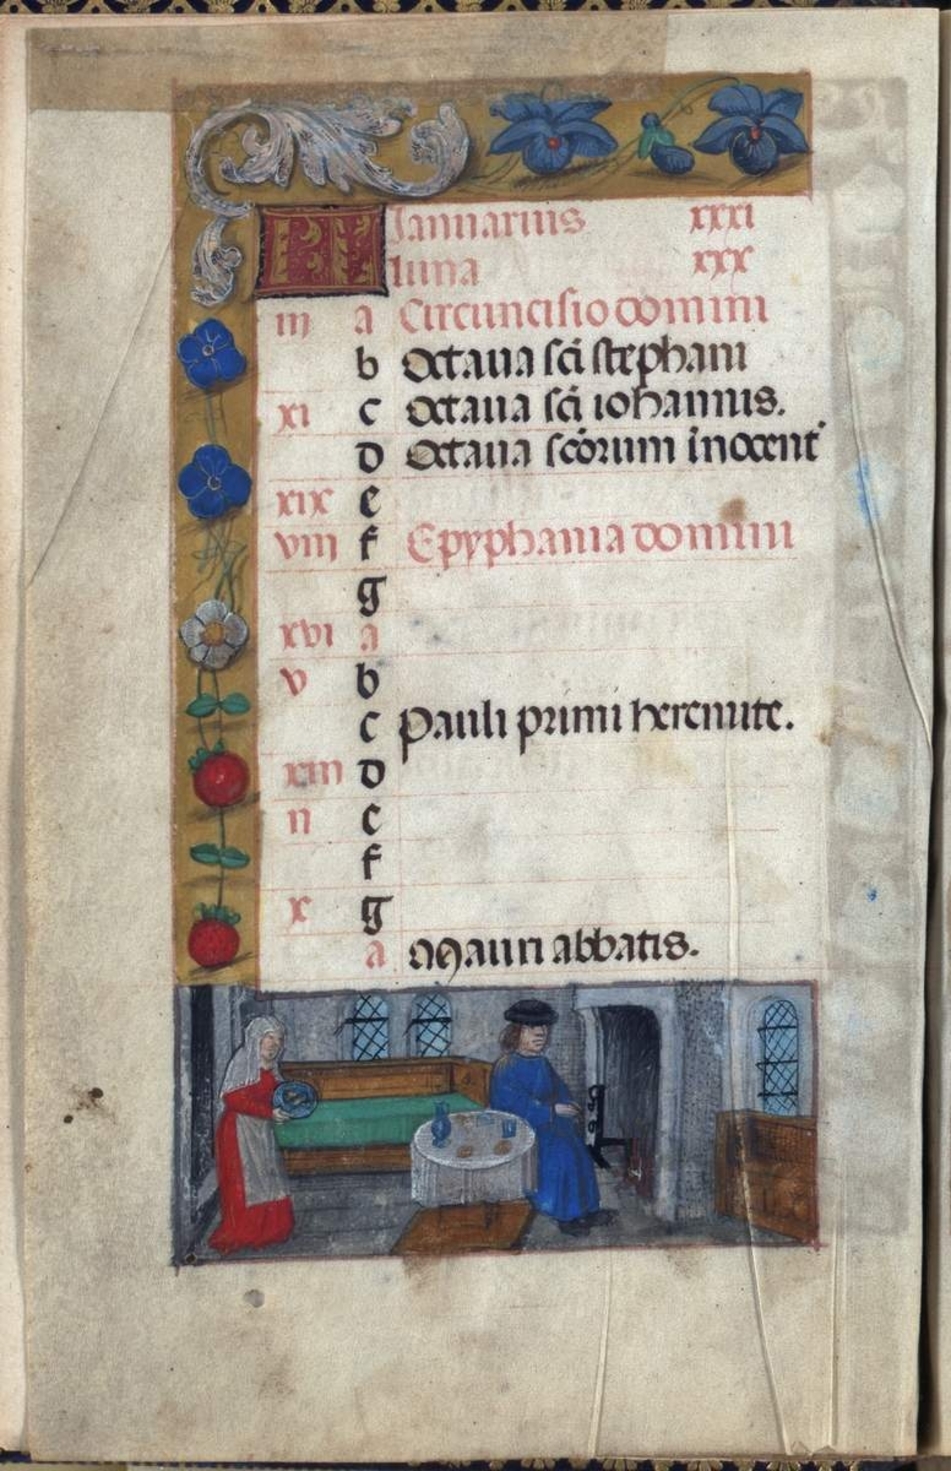 KL Ianuarius xxxi
luna xxx
iii a Circuncisio domini
b Octaua sci stephani
xi c Octaua sci iohannis.
d Octaua scorum inocent
xix e
viii f Epyphania domini
g
xvi a
v b
c Pauli primi heremite.
xiii d
ii e
f
x g
a Mauri abbatis.